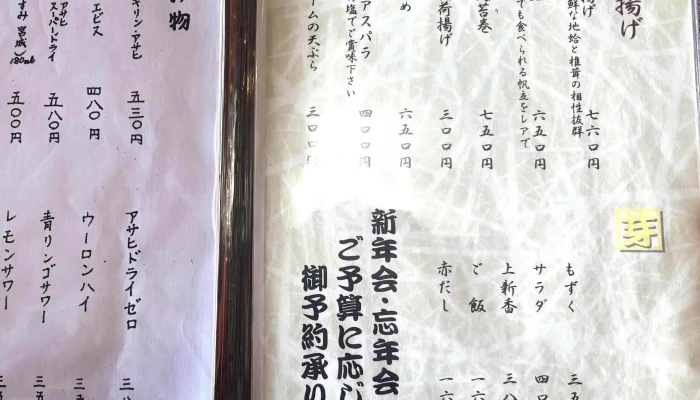 揚げ
揚げ
鮮な地蛤と椎茸の相性抜群
七六〇円
でも食べられる帆立をレアで
六五〇円
苔巻
七五〇円
荷揚げ
三〇〇円
め
六五〇円
アスパラ
塩でご賞味下さい
四〇〇円
ームの天ぷら
三〇〇円
芽
もずく
三五
サラダ
四〇
上新香
三八
ご飯
一六
赤だし
一六
新年会・忘年会
ご予算に応じ
御予約承り
物
キリン・アサヒ
五三〇円
エビス
四八〇円
アサヒ
スーパードライ
五八〇円
すみ 宮城）180ml
五〇〇円
アサヒドライゼロ
三八
ウーロンハイ
三五
青リンゴサワー
三五
レモンサワー
三五